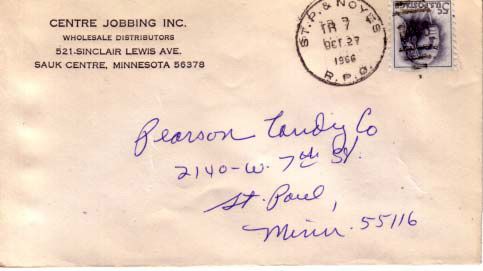 CENTRE JOBBING INC.
WHOLESALE DISTRIBUTORS
521-SINCLAIR LEWIS AVE.
SAUK CENTRE, MINNESOTA 56378
ST. P. & NOYES
TR 7
OCT 27
1966
R.P.O.
Pearson Candy Co
2140-W. 7th St.
St. Paul,
Minn. 55116